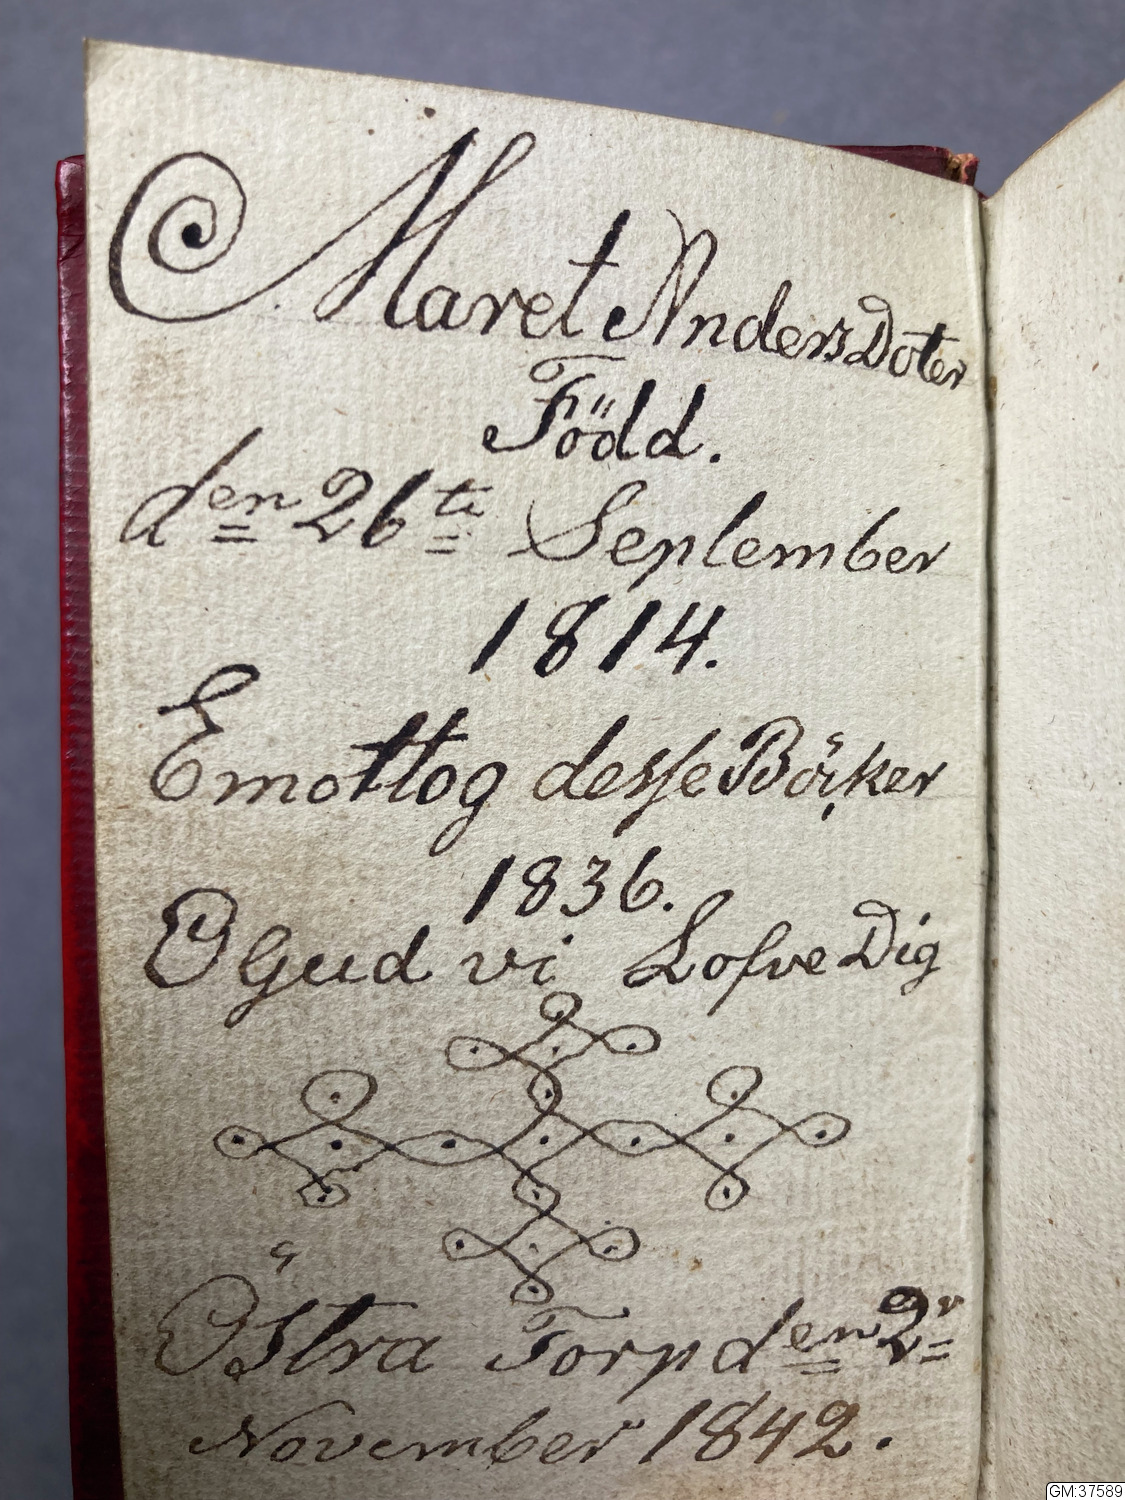 Maret AndersDoter
Född.
den 26te September
1814.
Emottog desse Böcker
1836.
O Gud vi Lofve Dig
Östra Torp den 2r
November 1842.
GM:37589